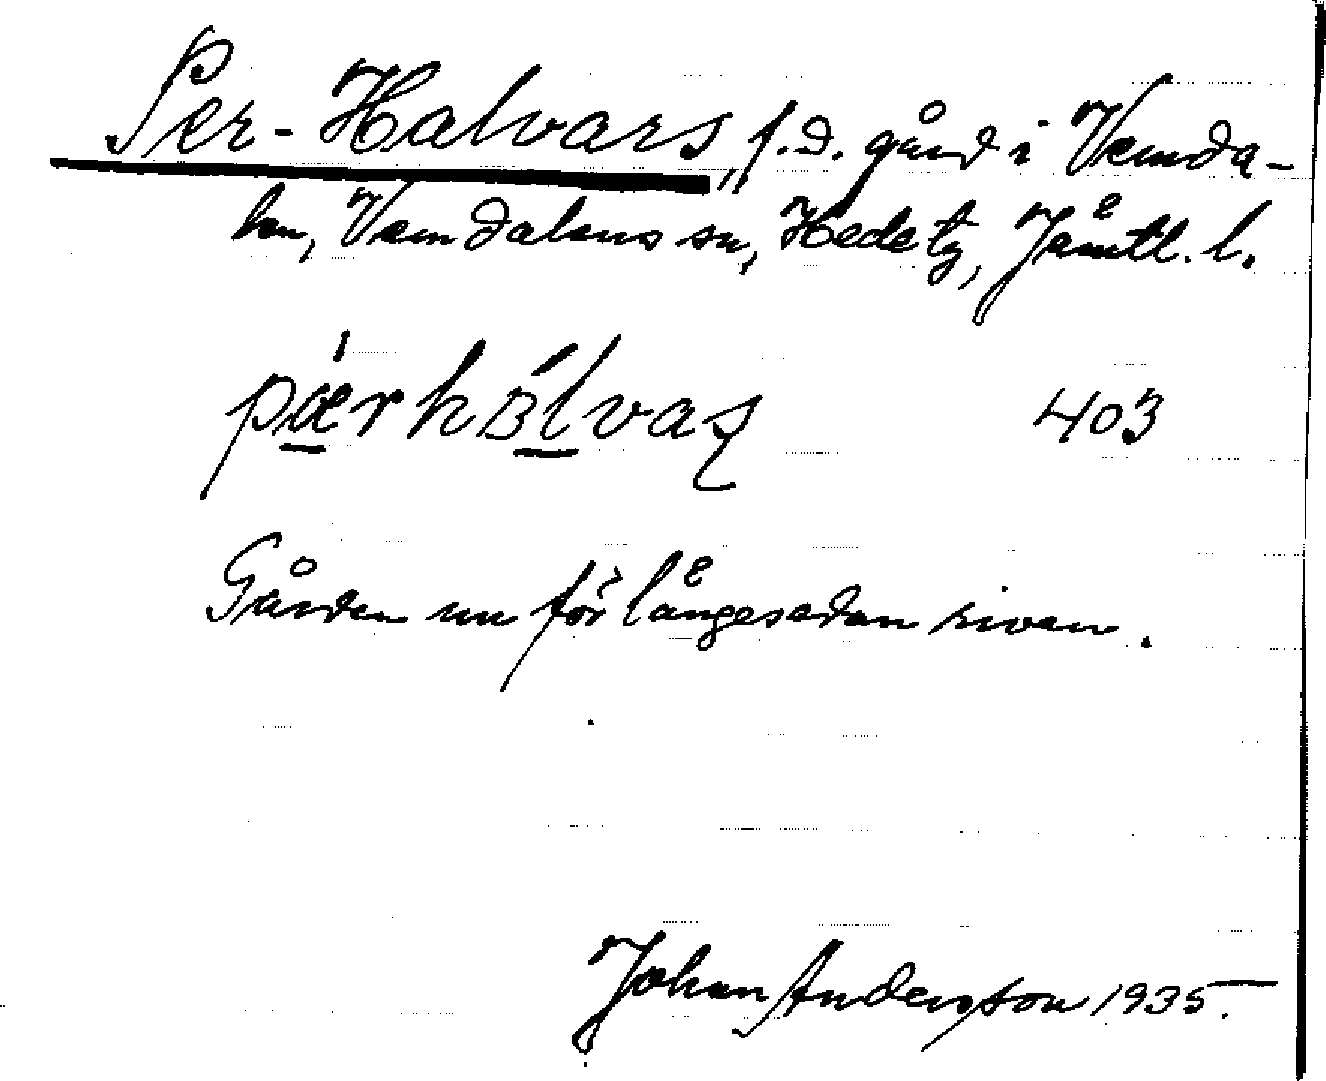 Per-Halvars, f.d. gård i Vemda-
len, Vemdalens sn, Hede tg, Jämtl. l.
pærhɔlvaʂ 403
Gården nu för längesedan riven.
Johan Andersson 1935.